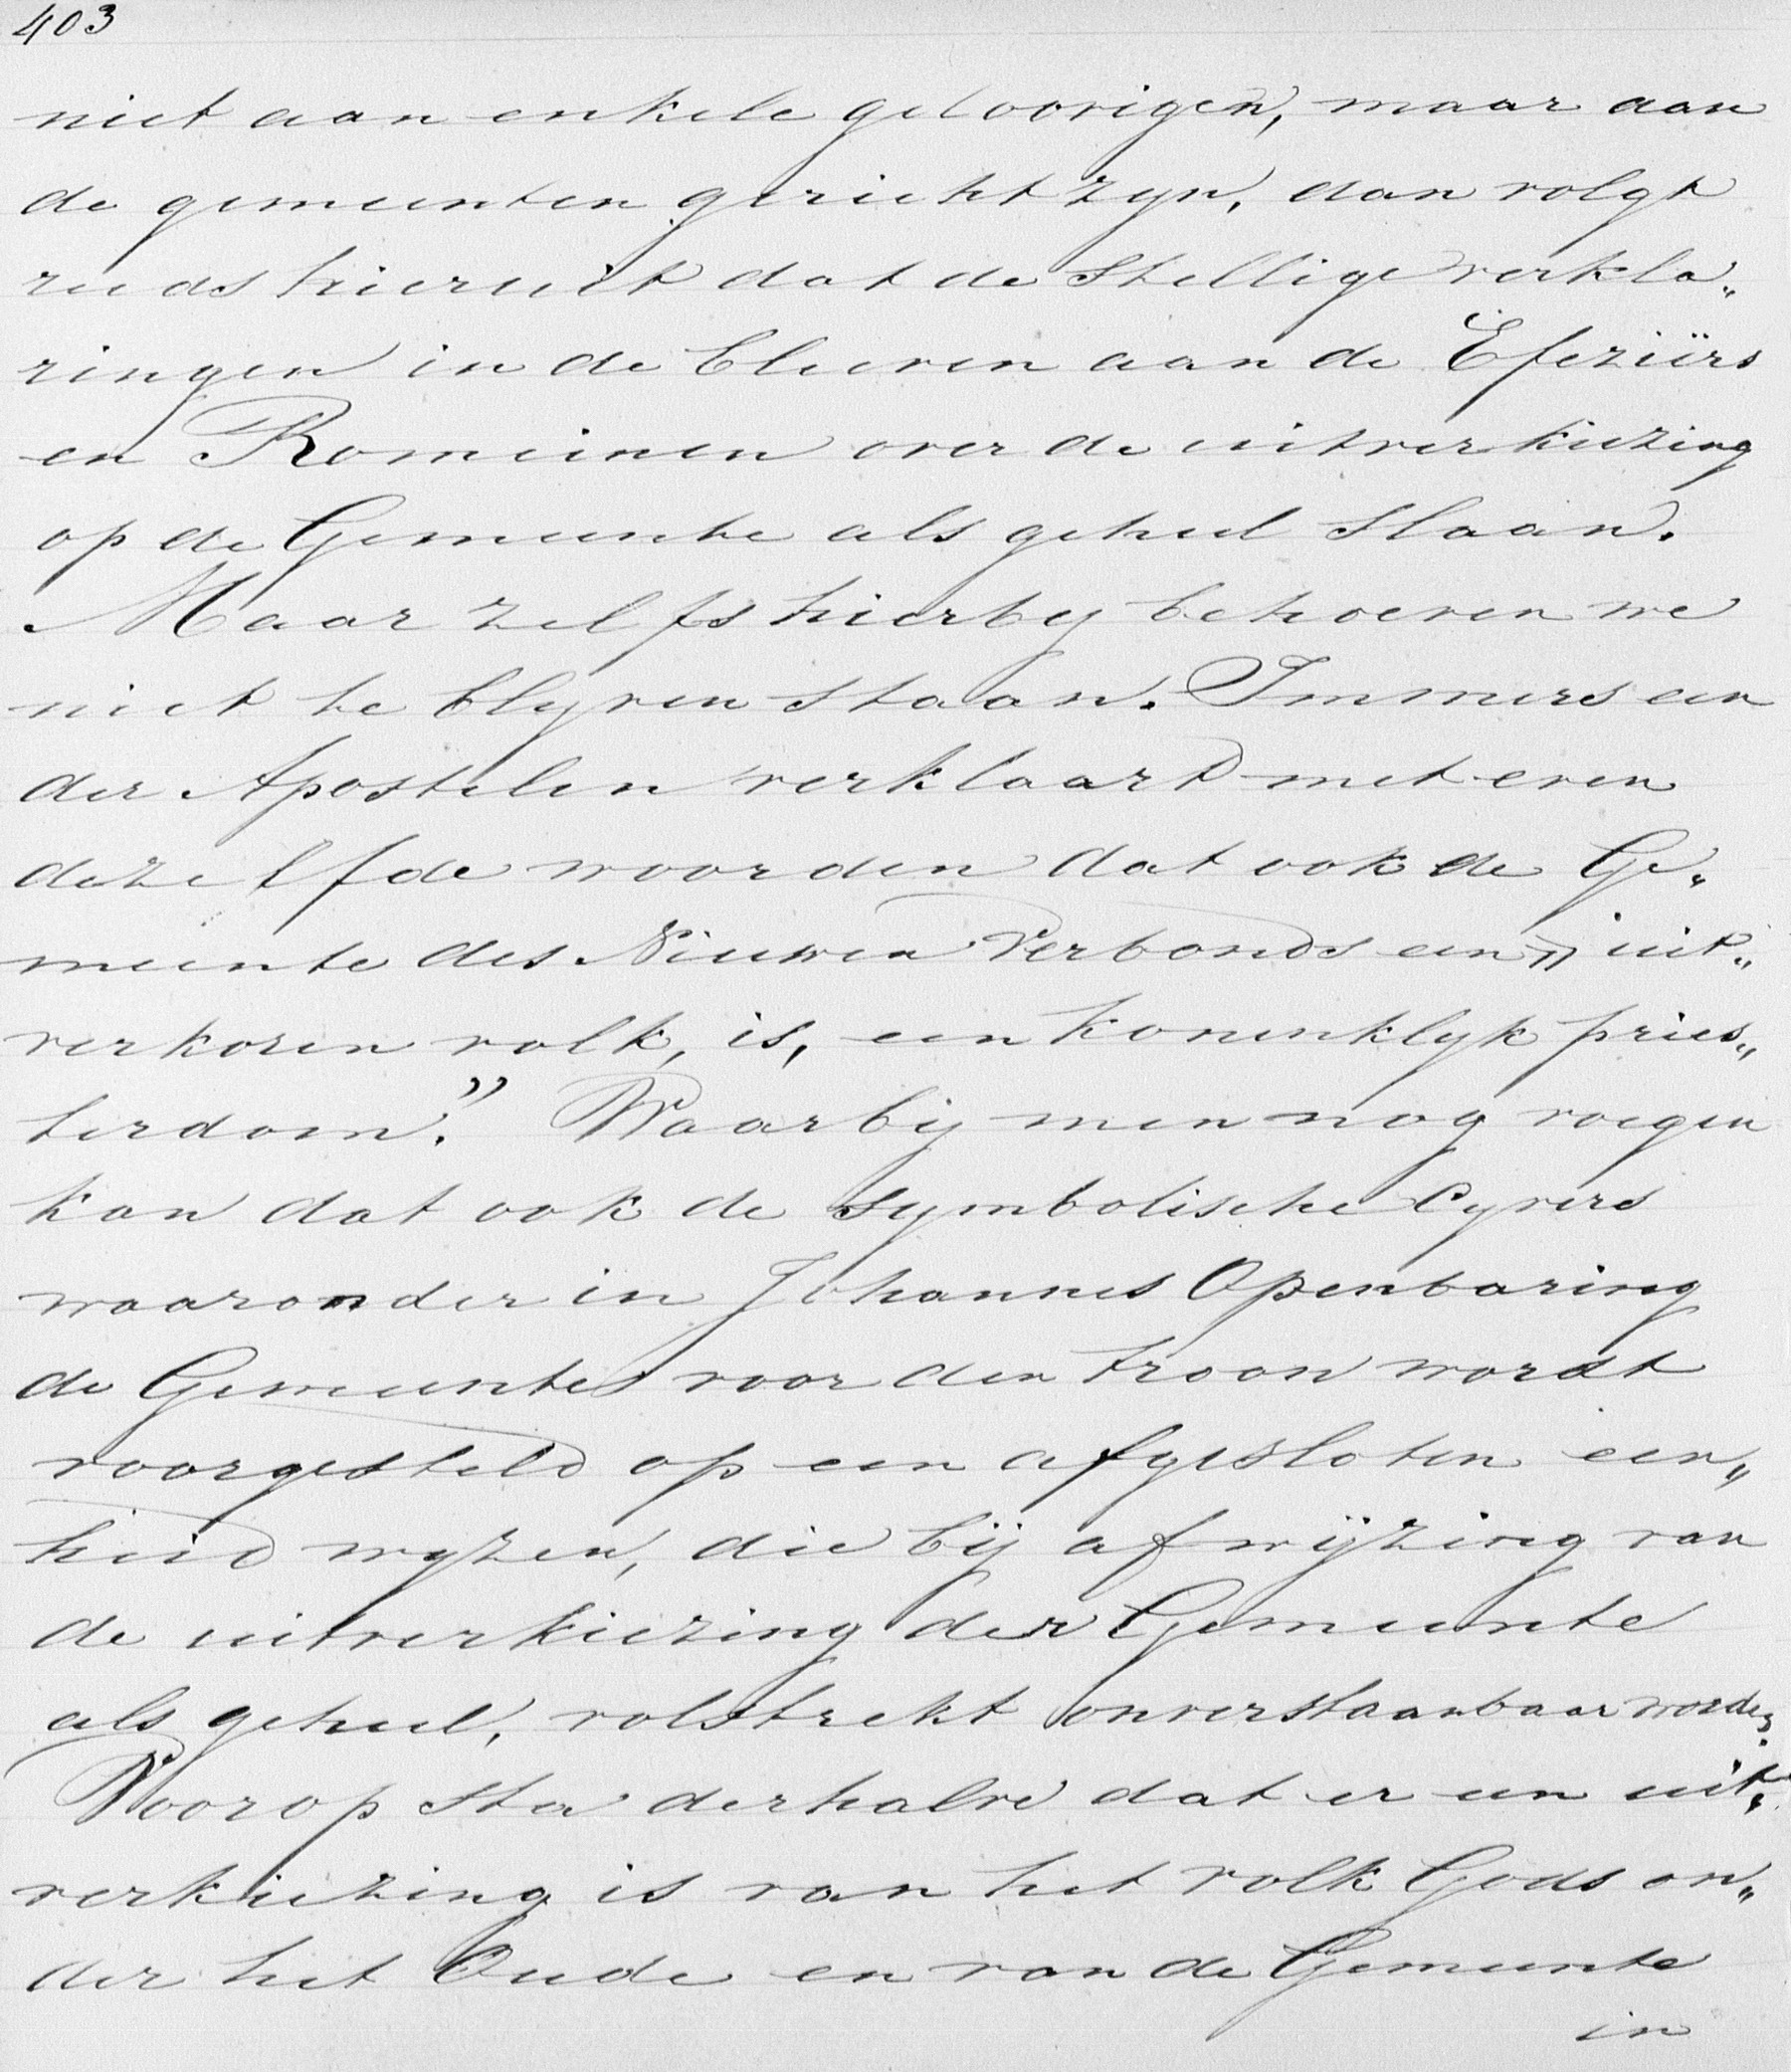 403
niet aan enkele geloovigen, maar aan
de gemeenten gericht zyn, dan volgt
reeds hieruit dat de Stellige verkla„
ringen in de brieven aan de Efeziërs
en Romeinen over de uitverkiezing
op de Gemeente als geheel slaan.
Maar zelfs hierby behoeven we
niet te blyven staan. Immers een
der Apostelen verklaart met even
dezelfde woorden dat ook de Ge„
meente des Nieuwen Verbonds een „uit„
verkoren volk, is, een koninklyk pries„
terdom.” Waarbij men nog voegen
kan dat ook de symbolische Cyfers
waaronder in Johannes Openbaring
de Gemeente voor den troon wordt
voorgesteld op een afgesloten een„
heid wyzen, die bij afwijzing van
de uitverkiezing der Gemeente
als geheel, volstrekt onverstaanbaar worden.
Voorop sta derhalve dat er een uit„
verkiezing is van het volk Gods on„
der het Oude en van de Gemeente
in